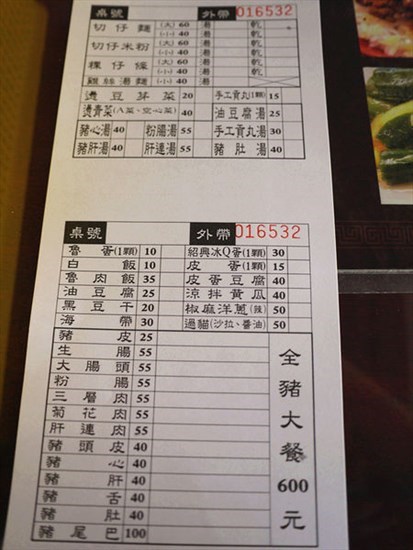 桌號 外帶 016532
切仔麵 (大) 60 湯 乾
(小) 40 湯 乾
切仔米粉 (大) 60 湯 乾
(小) 40 湯 乾
粿仔條 (大) 60 湯 乾
(小) 40 湯 乾
雞絲湯麵 (小) 40
燙豆芽菜 20 手工貢丸(1顆) 15
燙青菜(A菜、空心菜) 40 油豆腐湯 25
豬心湯 40 粉腸湯 55 手工貢丸湯 30
豬肝湯 40 肝連湯 55 豬肚湯 40
桌號 外帶 016532
魯蛋(1顆) 10 紹興冰Q蛋(1顆) 30
白飯 10 皮蛋(1顆) 15
魯肉飯 35 皮蛋豆腐 40
油豆腐 25 涼拌黃瓜 40
黑豆干 20 椒麻洋蔥(辣) 50
海帶 30 過貓(沙拉、醬油) 50
豬皮 25
生腸 55
大腸頭 55
粉腸 55
三層肉 55
菊花肉 55
肝連肉 55
豬頭皮 40
豬心 40
豬肝 40
豬舌 40
豬肚 40
豬尾巴 100
全豬大餐600元